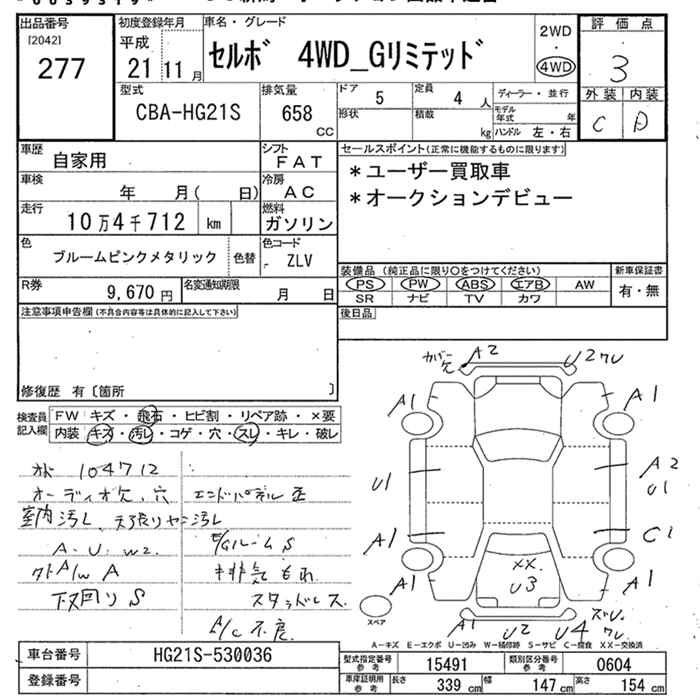 出品番号
[2042]
277
初度登録年月
平成
21 11月
車名・グレード
セルボ 4WD_Gリミテッド
2WD
・
4WD
評価点
3
外装 内装
C D
型式
CBA-HG21S
排気量
658
CC
ドア
5
定員
4 人
ディーラー・並行
形状
積載
kg
モデル年式 年
ハンドル 左・右
車歴
自家用
シフト
FAT
車検
年 月( 日)
冷房
AC
走行
10万4千712 km
燃料
ガソリン
色
ブルームピンクメタリック
色替
色コード
ZLV
R券
9,670 円
名変通知期限
月 日
セールスポイント(正常に機能するものに限ります)
*ユーザー買取車
*オークションデビュー
装備品 (純正品に限り○をつけてください)
新車保証書
PS PW ABS エアB AW
有・無
SR ナビ TV カワ
後日品
注意事項申告欄 (不具合内容等は具体的に記入して下さい)
修復歴 有〔箇所 〕
検査員記入欄
FW キズ・飛石・ヒビ割・リペア跡・×要
内装 キズ・汚レ・コゲ・穴・スレ・キレ・破レ
104712
オーディオ欠、穴
エンドパネル歪
室内汚し、天張りヤニ汚し
A・U・W2
E/Gルーム S
外A/W A
排気もれ
下回り S
スタッドレス
A/C不良
カバー欠 A2 U2 ワレ
A1 A1
U1 A2
U1
A1 C1
A1 XX. A1
U3
スペア
A1 U2 U4 ズレ
ワレ
A-キズ E-エクボ U-凹み W-補修跡 S-サビ C-腐食 XX-交換済
車台番号 HG21S-530036
登録番号
型式指定番号参考 15491
類別区分番号参考 0604
車庫証明用参考
長さ 339 cm 幅 147 cm 高さ 154 cm